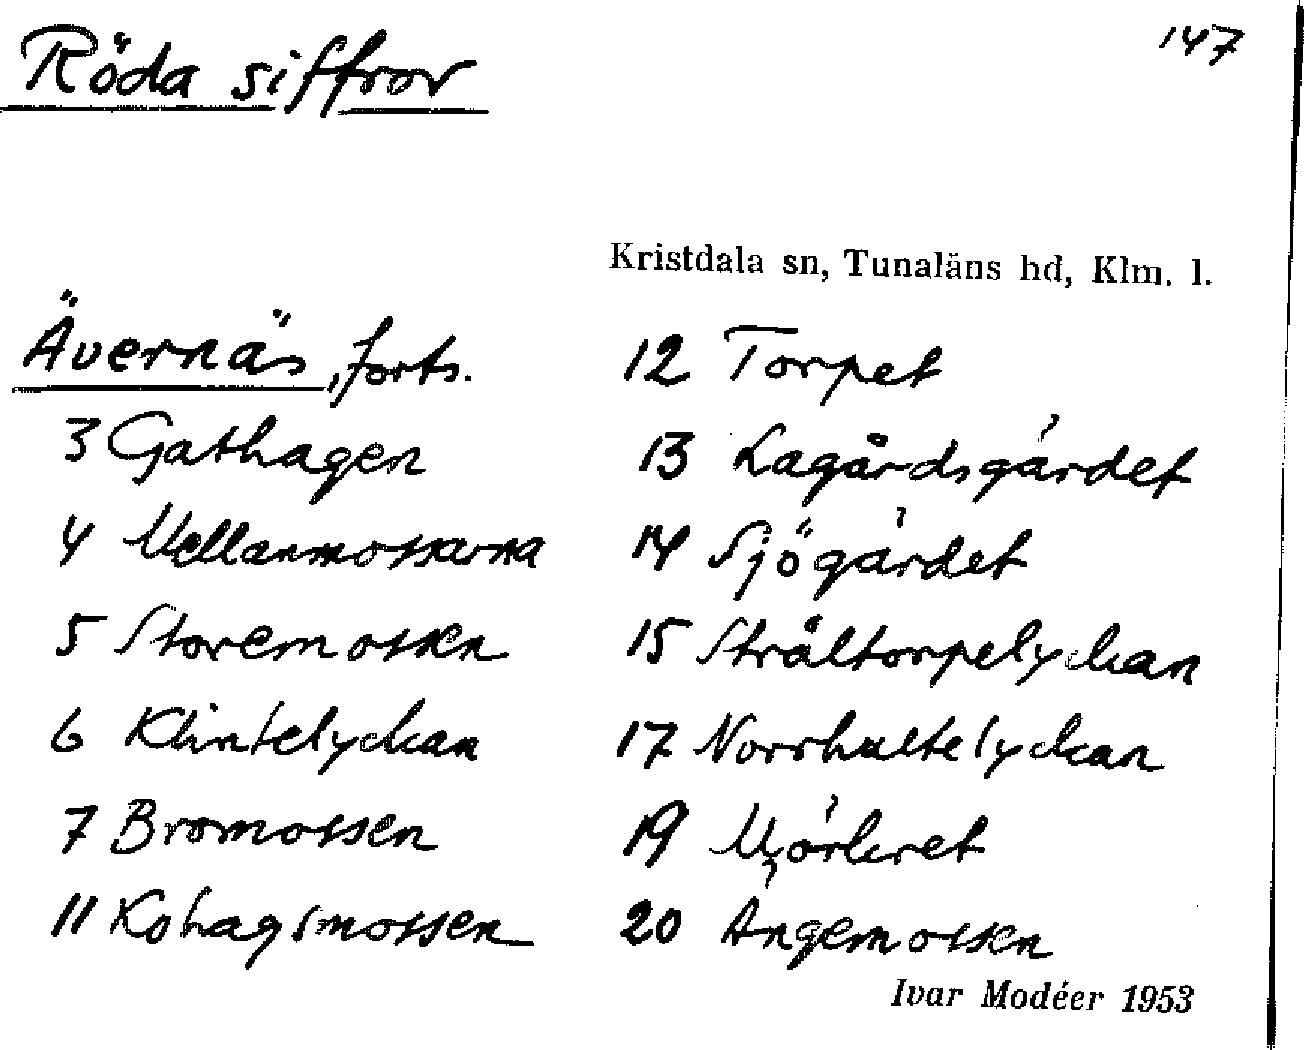 Röda siffror
147
Kristdala sn, Tunaläns hd, Klm. l.
Ävernäs, forts.
3 Gathagen
4 Mellanmossarna
5 Storemossen
6 Klintelyckan
7 Bromossen
11 Kohagsmossen
12 Torpet
13 Lagårdsgärdet
14 Sjögärdet
15 Stråltorpelyckan
17 Norrhultelyckan
19 Mörkret
20 Ängemossen
Ivar Modéer 1953